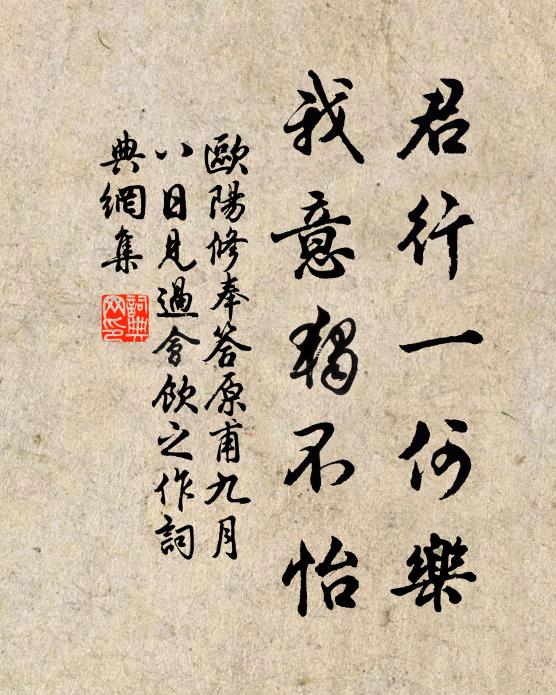 君行一何樂
我意獨不怡
歐陽修奉答原甫九月
八日見過會飲之作詞
典網集
詞典网印